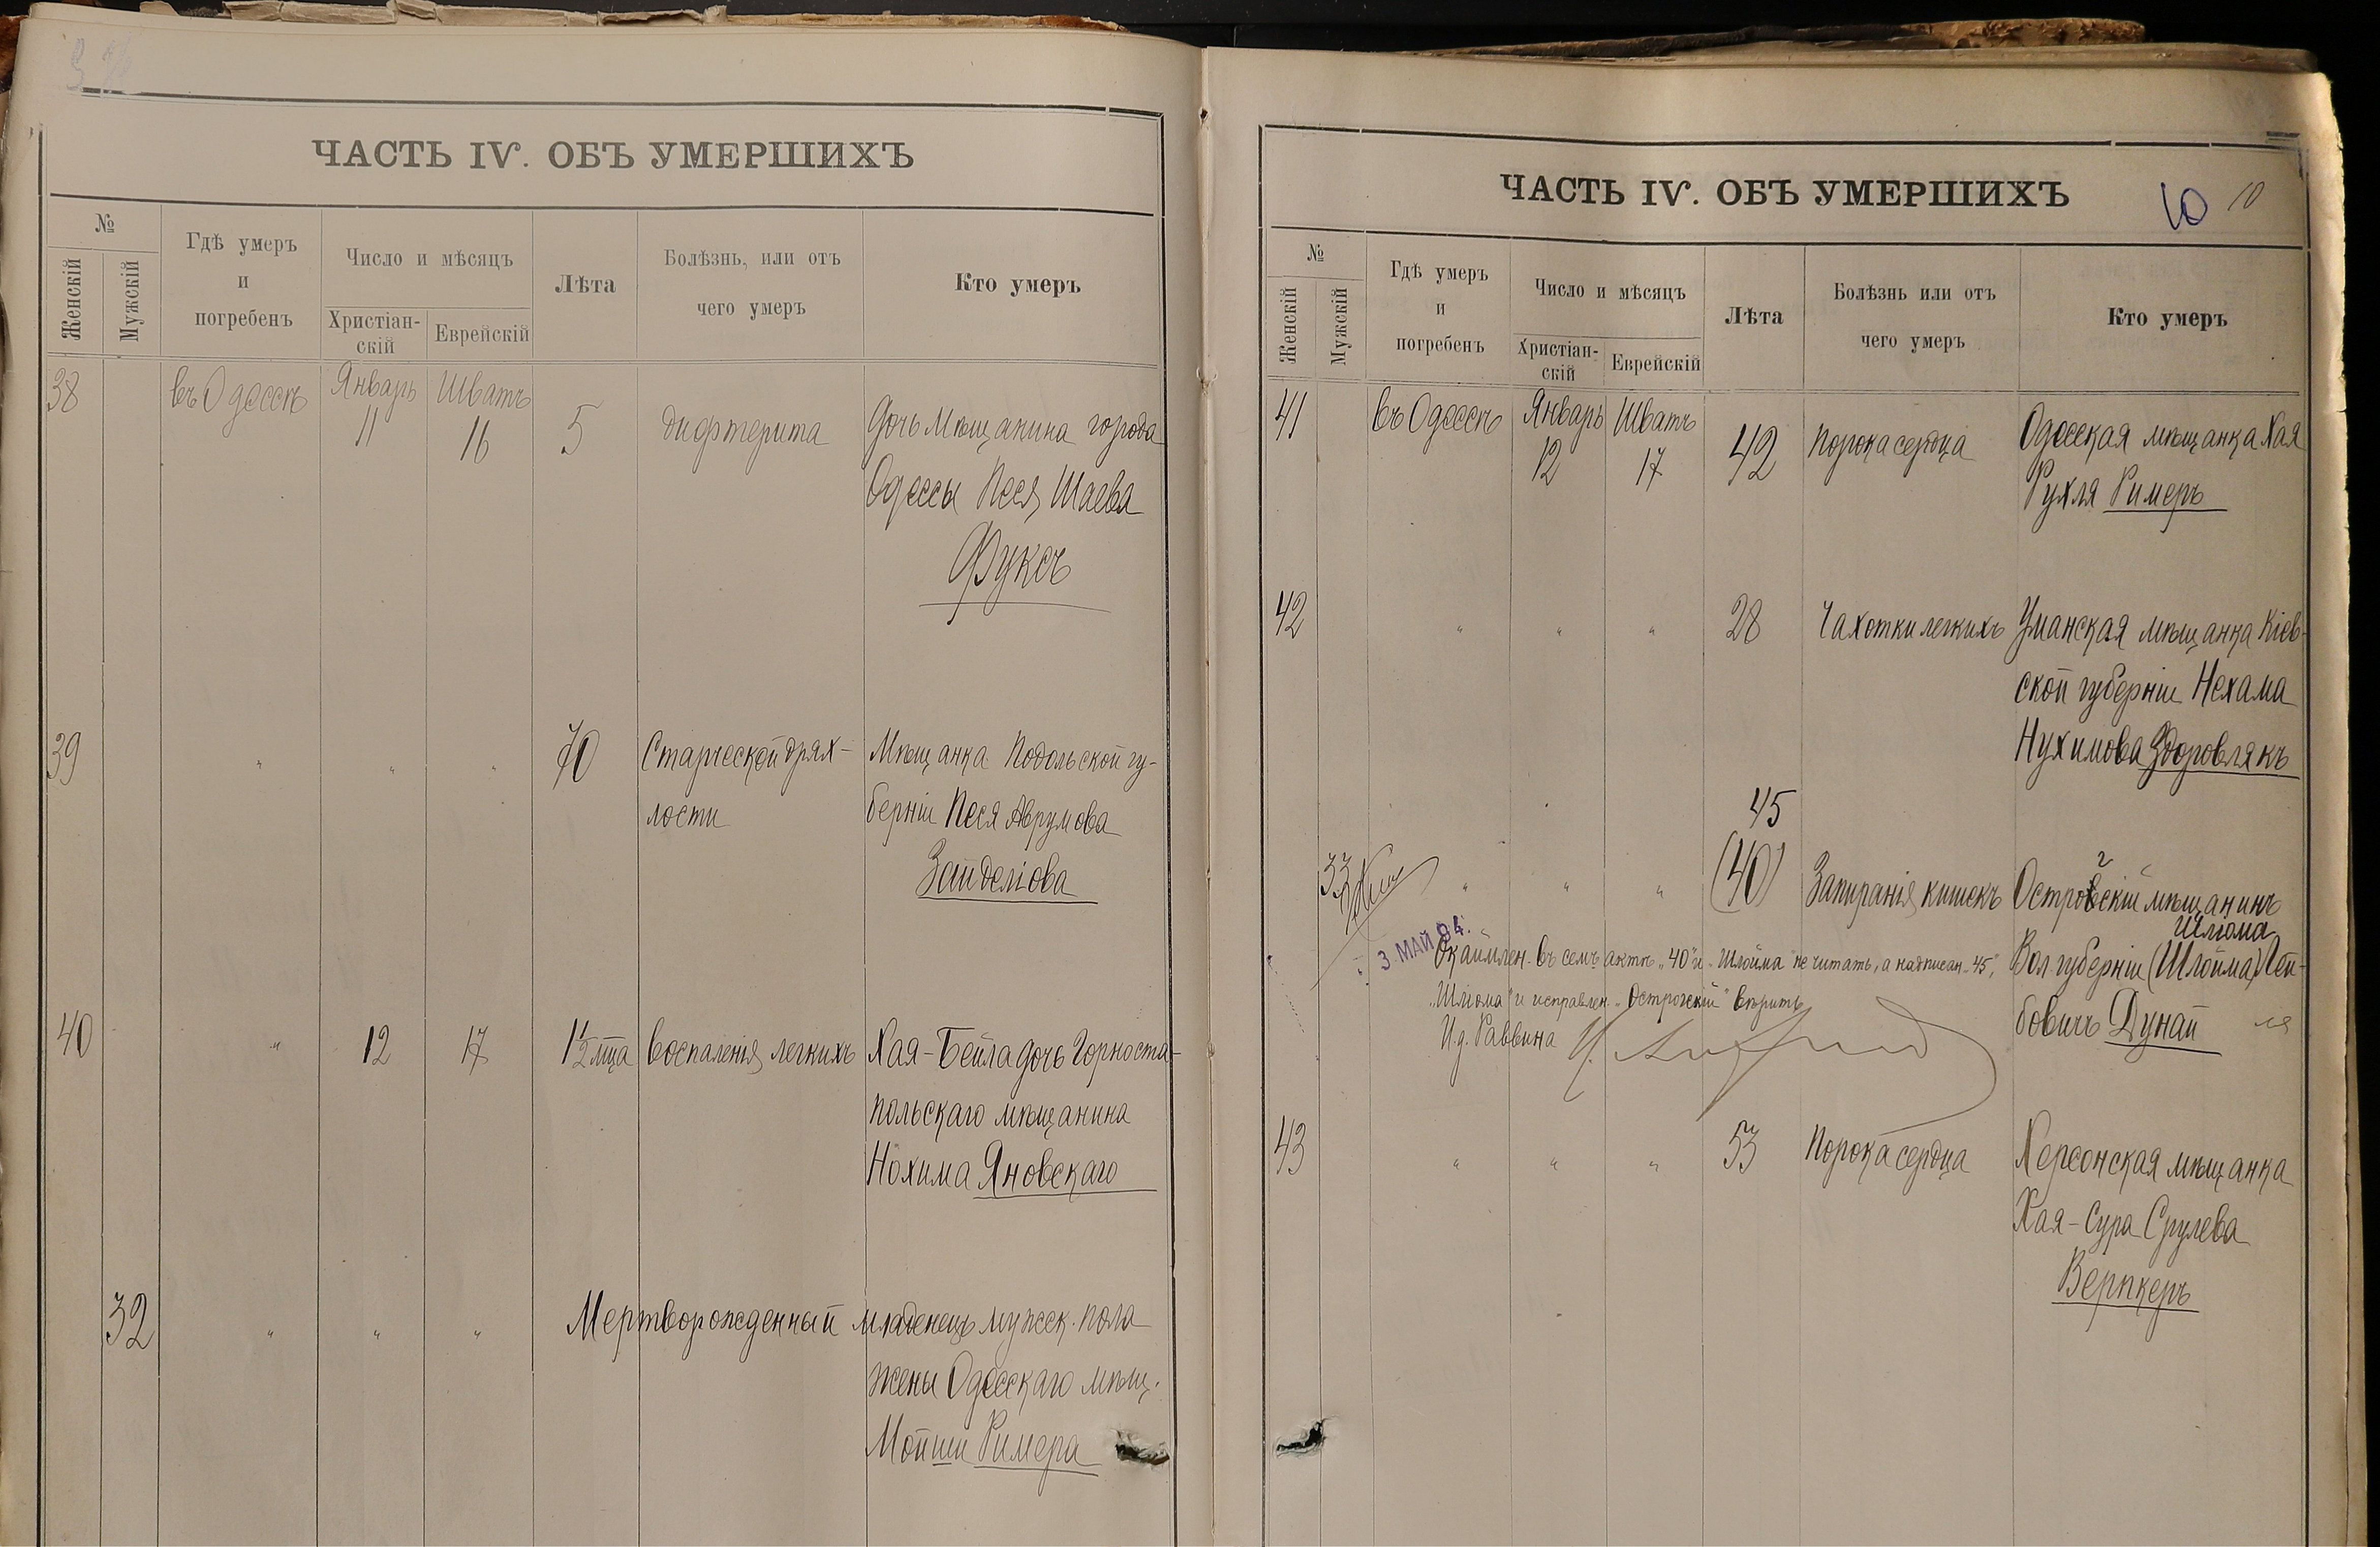 ЧАСТЬ IV. ОБЪ УМЕРШИХЪ
№
Женскій
Мужскій
Гдѣ умеръ
и
погребенъ
Число и мѣсяцъ
Христіан-
скій
Еврейскій
Лѣта
Болѣзнь, или отъ
чего умеръ
Кто умеръ
38 въ Одессѣ Январь Шватъ
11 16 5 дифтерита Дочь мѣщанина города
Одессы Песя Шаева
Фуксъ
39 " " " 70 Старческой дрях- Мѣщанка Подольской гу-
лости берніи Песя Аврумова
Зайделіова
40 " 12 17 1 1/2 мѣца воспаленія легкихъ Хая-Бейла дочь Горноста-
польскаго мѣщанина
Нохима Яновскаго
32 " " " Мертворожденный младенецъ мужск. пола
жены Одесскаго мѣщ.
Мойши Римера
ЧАСТЬ IV. ОБЪ УМЕРШИХЪ
10 10
№
Женскій
Мужскій
Гдѣ умеръ
и
погребенъ
Число и мѣсяцъ
Христіан-
скій
Еврейскій
Лѣта
Болѣзнь или отъ
чего умеръ
Кто умеръ
41 въ Одессѣ Январь Шватъ
12 17 42 порока сердца Одесская мѣщанка Хая
Рухля Римеръ
42 " " " 28 Чахотки легкихъ Уманская мѣщанка Кіев-
ской губерніи Нехама
Нухимова Здоровлякъ
45
33 " " " (40) Запиранія кишекъ Острогскій мѣщанинъ
Шліома
Вол. губерніи (Шлойма) Лей-
бовичъ Дунай
3 МАЙ 94.
Окаймлен. въ семъ актѣ "40" и "Шлойма" не читать, а надписан. "45",
"Шліома" и исправлен. "Острогскій" вѣрить
И.д. Раввина
43 " " " 53 Порока сердца Херсонская мѣщанка
Хая-Сура Срулева
Верпкеръ